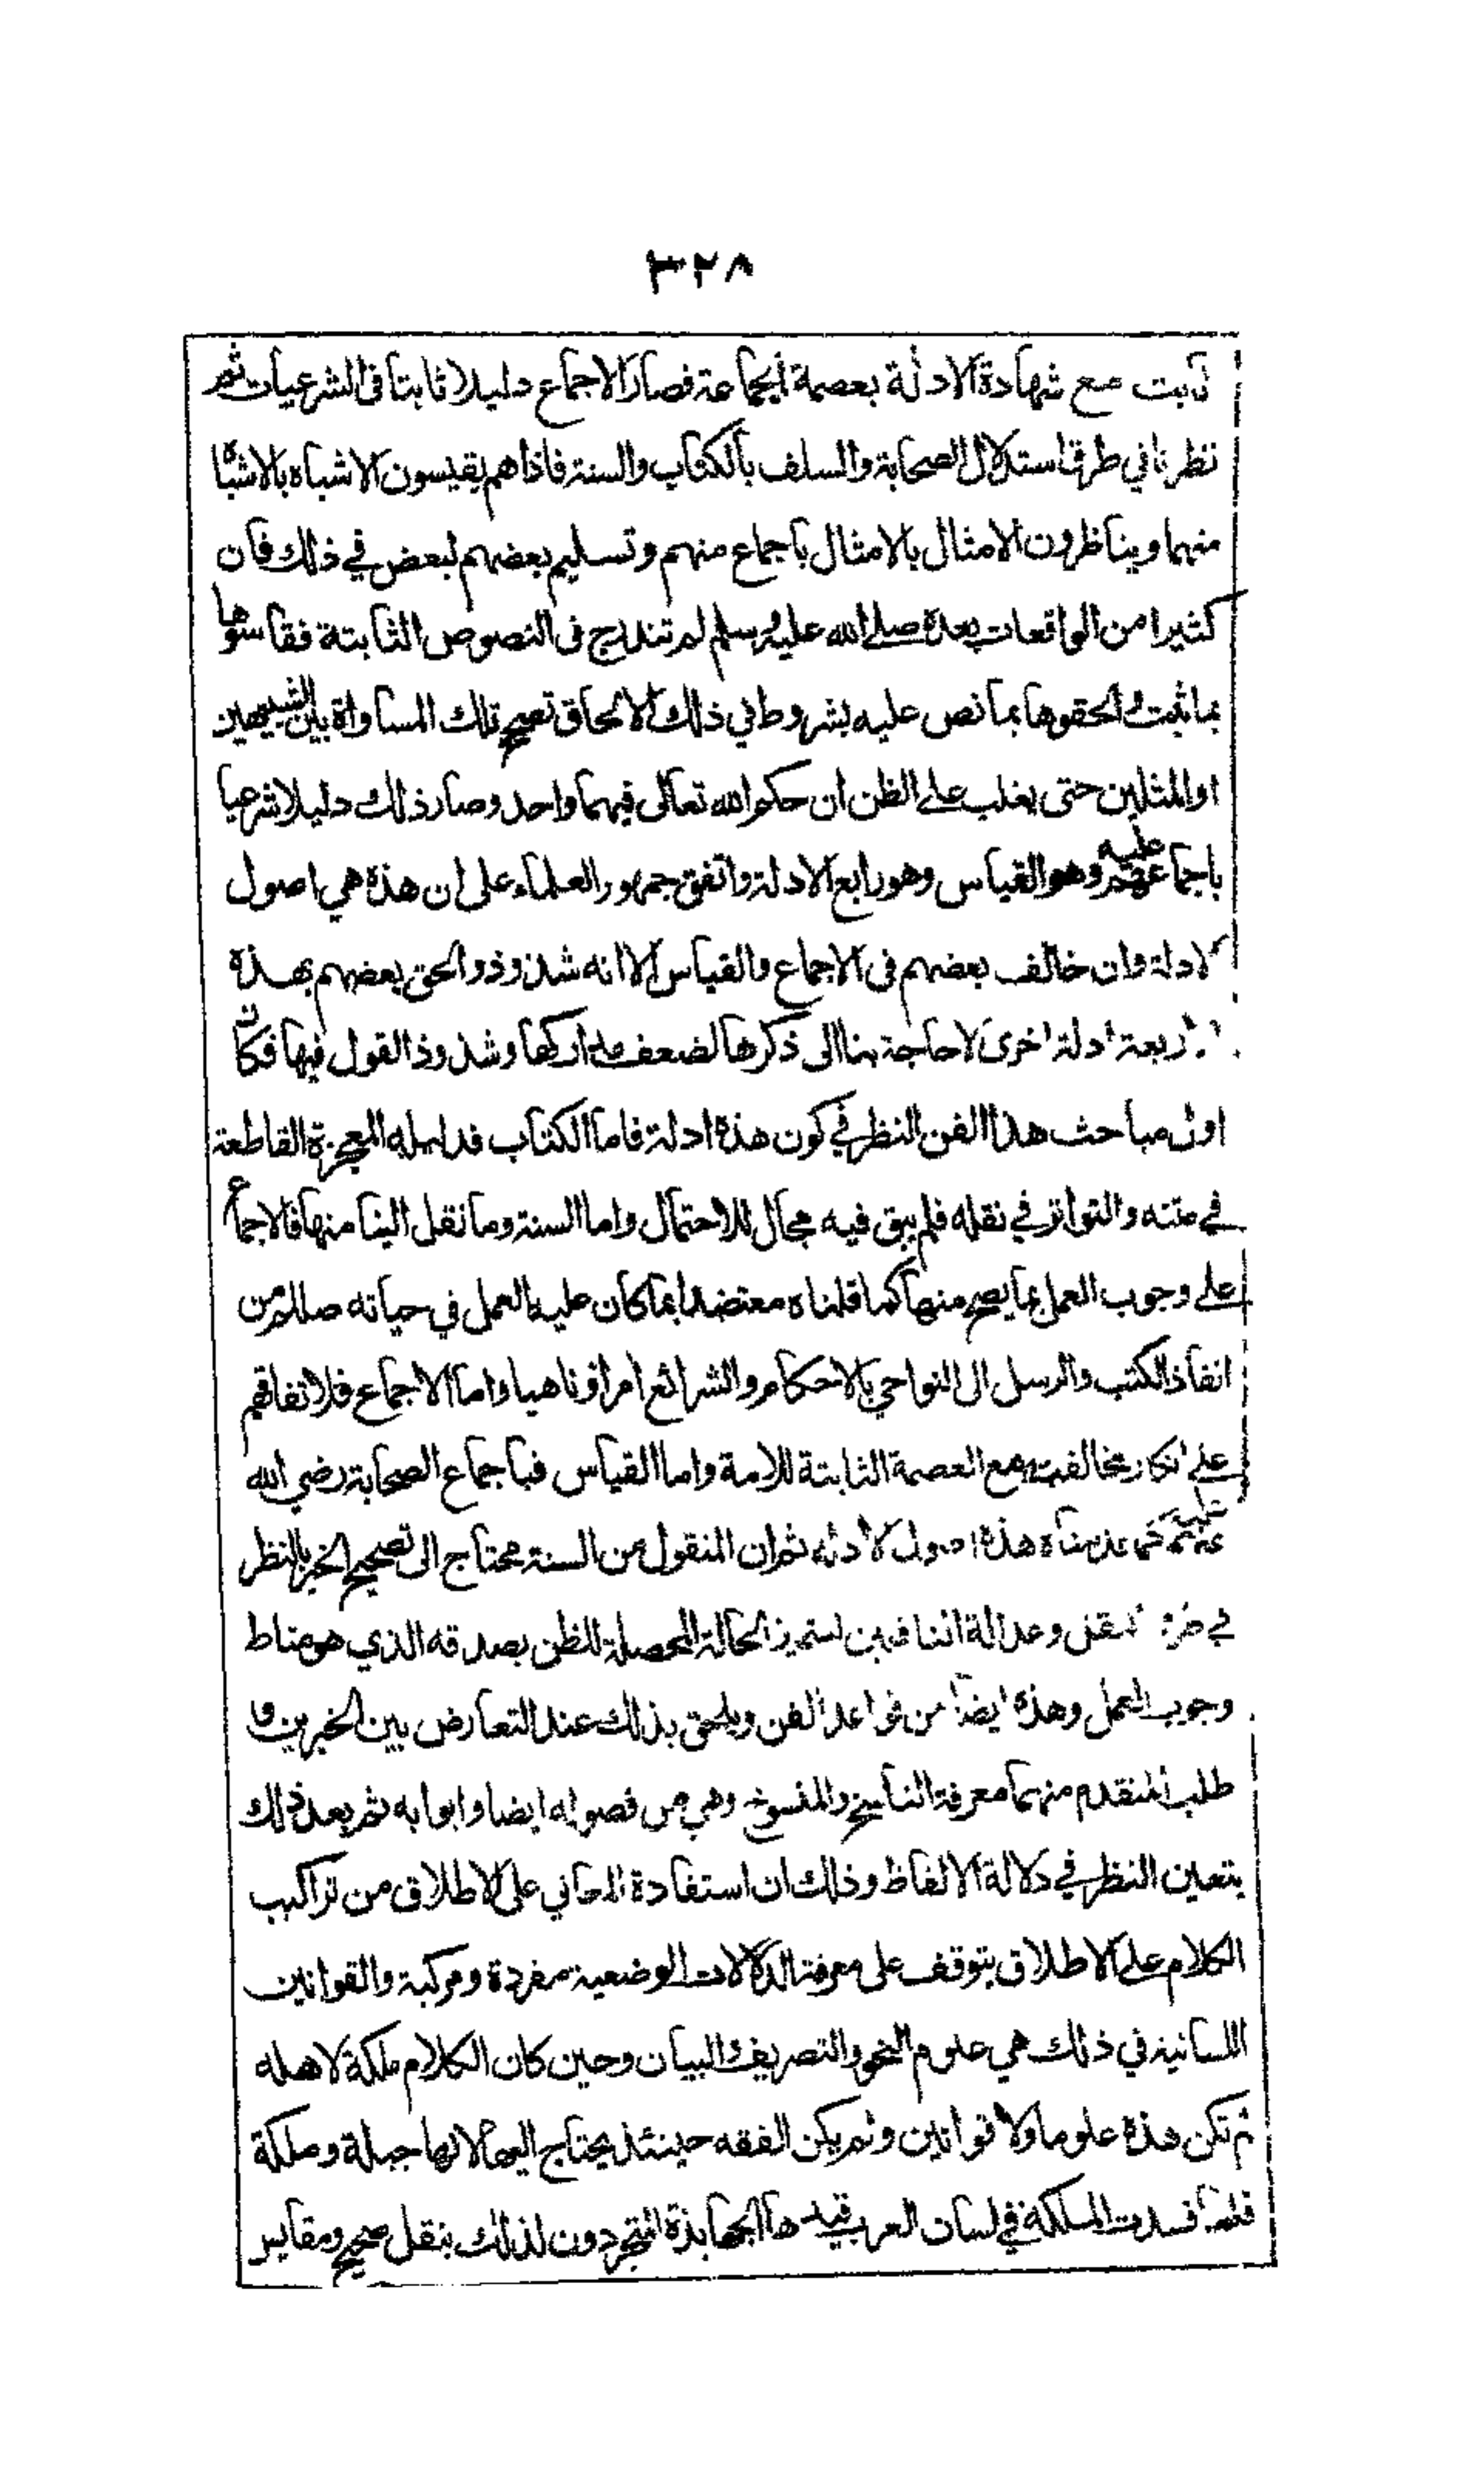 ٣٢٨
ثابت مع شهادة الادلة بعصمة الجماعة فصار الاجماع دليلا ثابتا فى الشرعيات ثم
نظرنا في طرق استدلال الصحابة والسلف بالكتاب والسنة فاذا هم يقيسون الاشباه بالاشباه
منهما ويناظرون الامثال بالامثال باجماع منهم وتسليم بعضهم لبعض في ذلك فان
كثيرا من الواقعات بعده صلے الله عليه وسلم لم تندرج فى النصوص الثابتة فقاسوها
بما ثبت والحقوها بما نص عليه بشروط في ذلك الالحاق تصحح تلك المساواة بين الشبيهين
او المثلين حتى يغلب على الظن ان حكم الله تعالى فيهما واحد وصار ذلك دليلا شرعيا
باجماعهم عليه وهو القياس وهو رابع الادلة واتفق جمهور العلماء على ان هذه هي اصول
الادلة وان خالف بعضهم فى الاجماع والقياس الا انه شذوذ والحق بعضهم بهذه
الاربعة ادلة اخرى لا حاجة بنا الى ذكرها لضعف مداركها وشذوذ القول فيها فكان
اول مباحث هذا الفن النظر في كون هذه ادلة فاما الكتاب فدليله المعجزة القاطعة
في متنه والتواتر في نقله فلم يبق فيه مجال للاحتمال واما السنة وما نقل الينا منها فالاجماع
على وجوب العمل بما يصح منها كما قلناه معتضدا بما كان عليه العمل في حياته صللم من
انفاذ الكتب والرسل الى النواحي بالاحكام والشرائع امرا وناهيا واما الاجماع فلاتفاقهم
على انكار مخالفته مع العصمة الثابتة للامة واما القياس فباجماع الصحابة رضي الله
عنهم عليه كما قدمناه هذه اصول الادلة ثم ان المنقول من السنة محتاج الى تصحيح الخبر بالنظر
في طرق النقل وعدالة الناقلين لتتميز الحالة المحصلة للظن بصدقه الذي هو مناط
وجوب العمل وهذه ايضا من قواعد الفن ويلحق بذلك عند التعارض بين الخبرين و
طلب المتقدم منهما معرفة الناسخ والمنسوخ وهي من فصوله ايضا وابوابه ثم بعد ذلك
يتعين النظر في دلالة الالفاظ وذلك ان استفادة المعاني على الاطلاق من تراكيب
الكلام على الاطلاق يتوقف على معرفة الدلالات الوضعية مفردة ومركبة والقوانين
اللسانية في ذلك هي علوم النحو والتصريف والبيان وحين كان الكلام ملكة لاهله
لم تكن هذه علوما ولا قوانين ولم يكن الفقه حينئذ يحتاج اليها لانها جبلة وملكة
فلما فسدت الملكة في لسان العرب قيدها الجهابذة المتجردون لذلك بنقل صحيح ومقايس